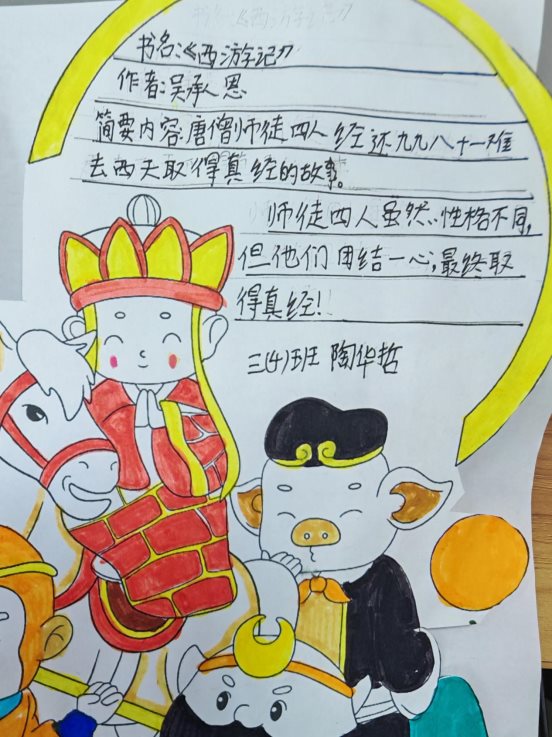 书名:《西游记》
作者:吴承恩
简要内容:唐僧师徒四人经还九九八十一难
去西天取得真经的故事。
师徒四人虽然性格不同,
但他们团结一心,最终取
得真经!
三(4)班 陶华哲